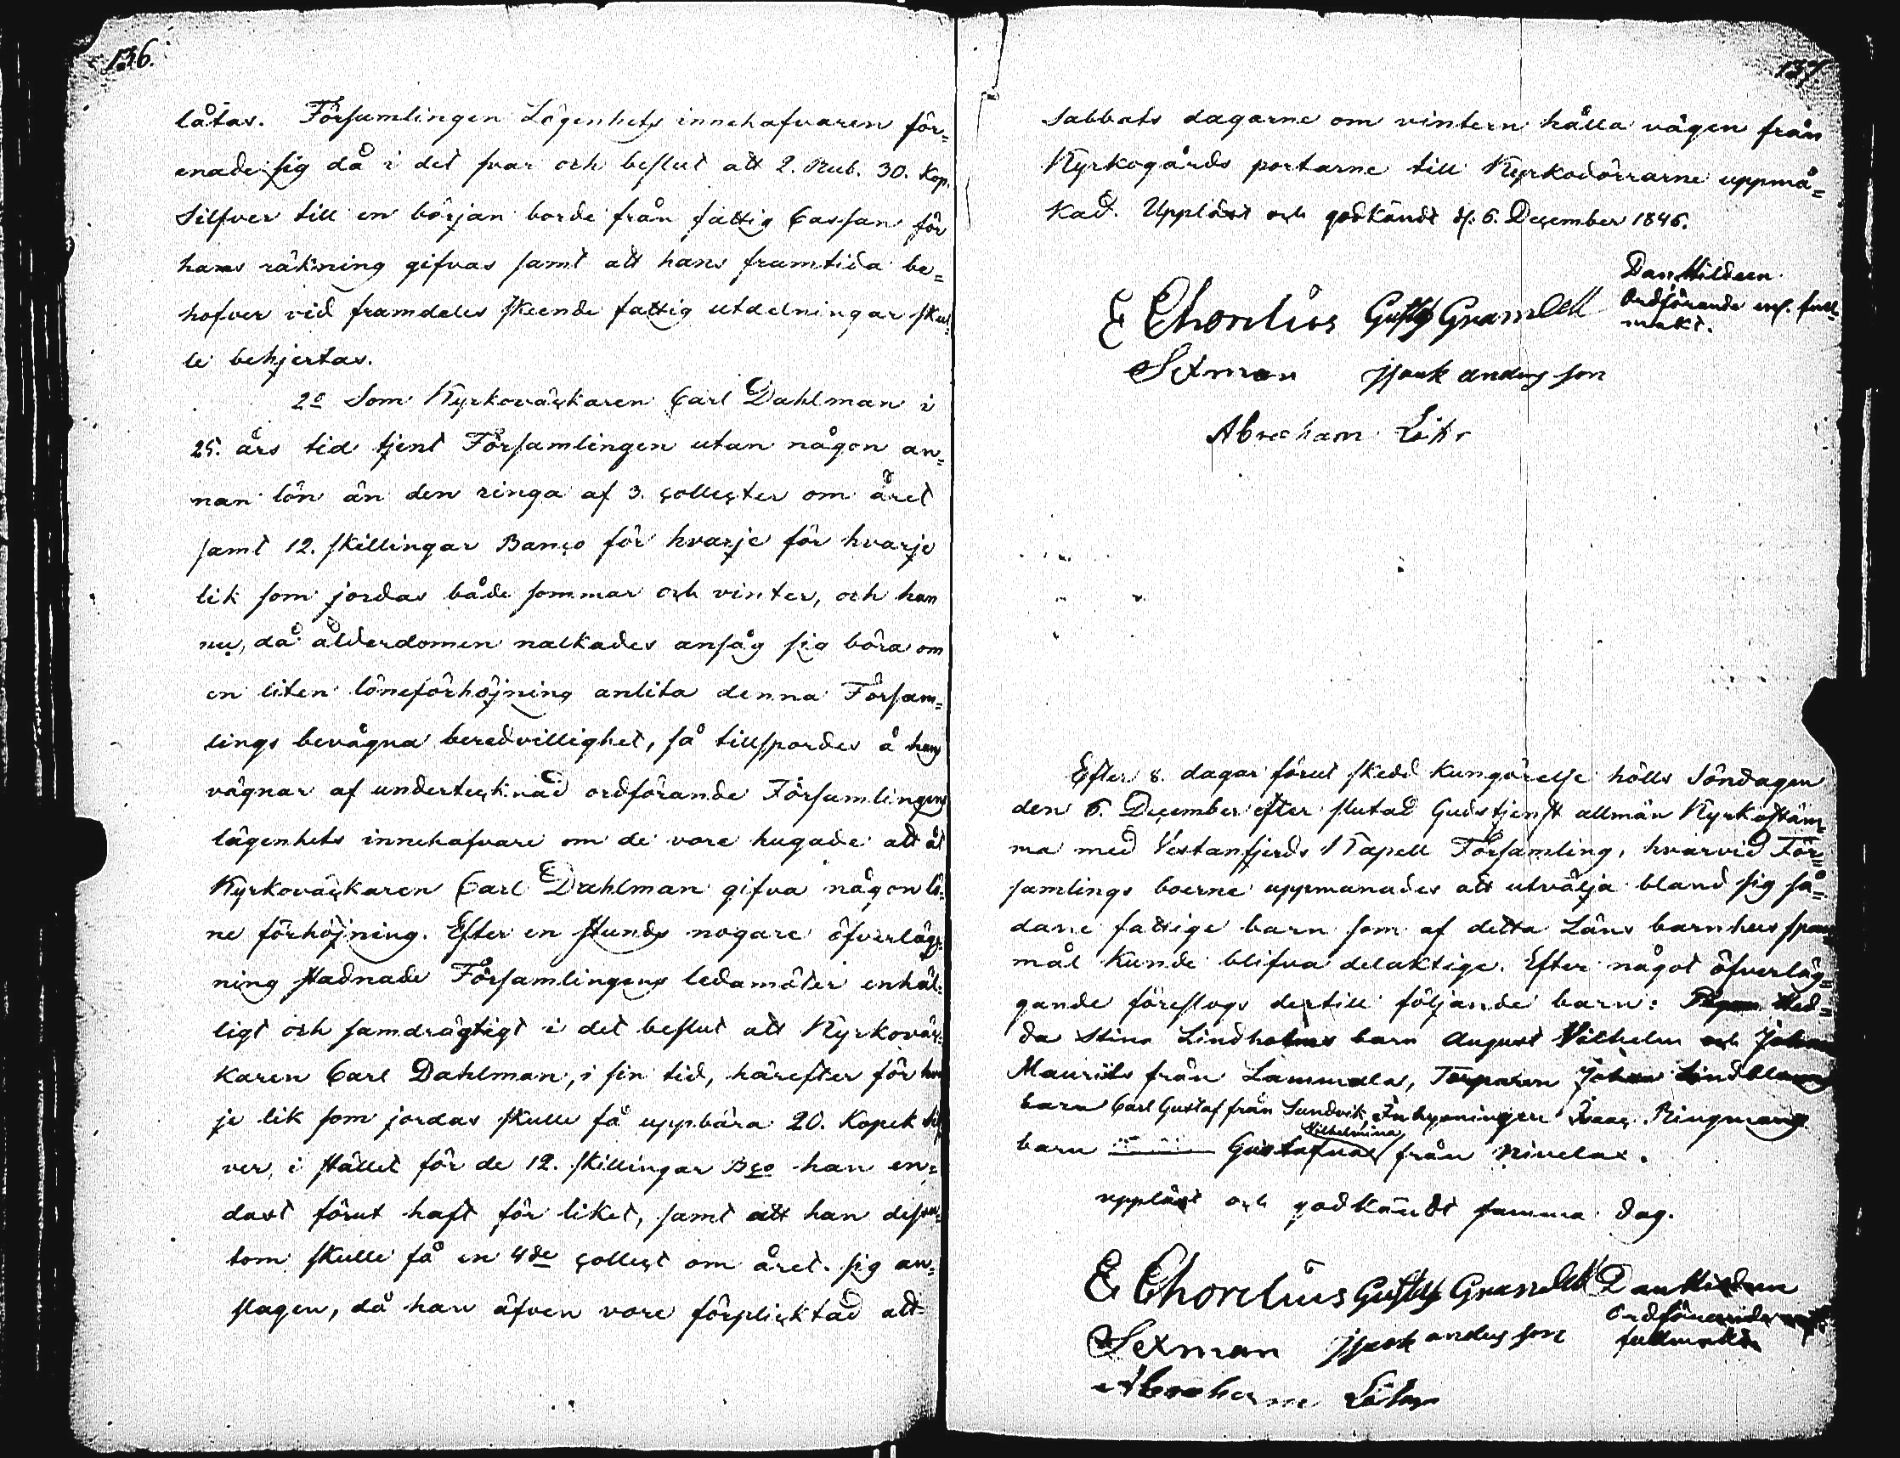 136.
låtas. Församlingen Lägenhets innehafvaren för=
enade sig då i det svar och beslut att 2. Rub. 30. Kop.
Silfver till en början borde från fattig Cassan för
hans räkning gifvas samt att hans framtida be=
hofver vid framdeles skeende fattig utdelningar skul
le behjertas.
2o Som Kyrkoväckaren Carl Dahlman i
25. års tid tjent Församlingen utan någon an=
nan lön än den ringa af 3. collecter om året
samt 12. skillingar Banco för hvarje för hvarje
lik som jordas både sommar och vinter, och han
nu, då ålderdomen nalkades ansåg sig böra om
en liten löneförhöjning anlita denna Försam=
lings bevägna beredvillighet, så tillspordes å hans
vägnar af undertecknad ordförande Församlingens
lägenhets innehafvare om de vore hugade att åt
Kyrkoväckaren Carl Dahlman gifva någon lö=
ne förhöjning. Efter en stunds nogare öfverlägg=
ning stadnade Församlingens ledamöter enhäl=
ligt och samdrägtigt i det beslut att Kyrkoväc=
karen Carl Dahlman, i sin tid, härefter för hvar
je lik som jordas skulle få uppbära 20. Kopek Silf
ver, i stället för de 12. skillingar Bco han en=
dast förut haft för liket, samt att han dessu=
tom skulle få en 4de collect om året. sig an=
slagen, då han äfven vore förplicktad att
137.
Sabbats dagarne om vintern hålla vägen från
Kyrkogårds portarne till Kyrkodörrarne uppmå=
kad. Uppläst och godkändt d. 6. December 1846.
Dan Hildeen
Ordförande enl. full=
makt.
E Chorelius Gustaf Grandell
Sexman jsaak anders son
Abraham
Efter 8. dagar förut skedd kungörelse hölls Söndagen
den 6. December efter slutad Gudstjenst allmän Kyrkostäm
ma med Vestanfjerds Kapell Församling, hvarvid För=
samlings boerne uppmanades att utvälja bland sig så=
dane fattige barn som af detta Läns barnhus span
mål kunde blifva delaktige. Efter något öfverläg=
gande föreslogs dertill följande barn: Hed=
da Stina Lindholms barn August Vilhelm och Johan
Maurits från Lammala, Torparen Johan Lindbloms
barn Carl Gustaf från Sundvik Inhysningen Isaac Ringmans
barn Gustafva Vilhelmina från Nivelax.
uppläst och godkändt samma dag.
E Chorelius Gustaf Grandell Dan Hildeen
Ordförande enl.
fullmakt
Sexman jsaak anders son
Abraham